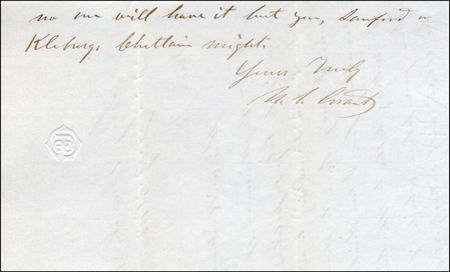 no one will have it but you, Sanford or
Kleburg. Chetlain might.
Yours Truly
U. S. Grant